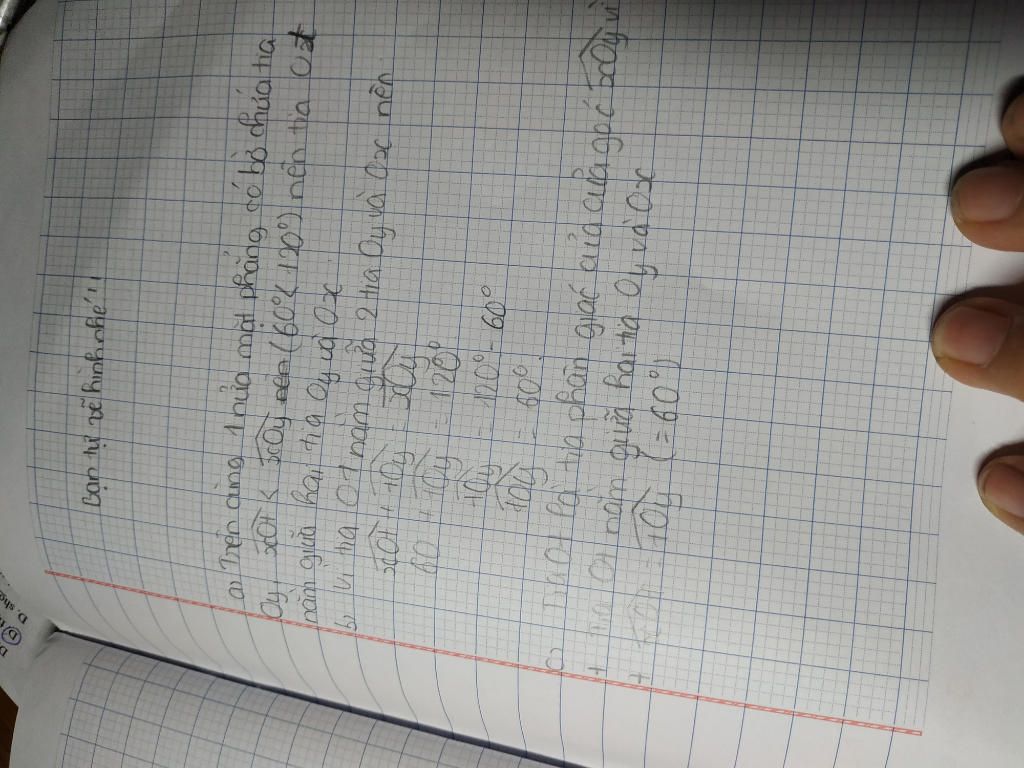 Bạn tự vẽ hình nhé!!
a) Trên cùng 1 nửa mặt phẳng có bờ chứa tia
Oy xOt < xOy (60° < 120°) nên tia Ot
nằm giữa hai tia Oy và Ox
b) Vì tia Ot nằm giữa 2 tia Oy và Ox nên
xOt + tOy = xOy
60 + tOy = 120°
tOy = 120° - 60°
tOy = 60°
c) Tia Ot là tia phân giác của của góc xOy vì
+ Tia Ot nằm giữa hai tia Oy và Ox
+ xOt = tOy (= 60°)